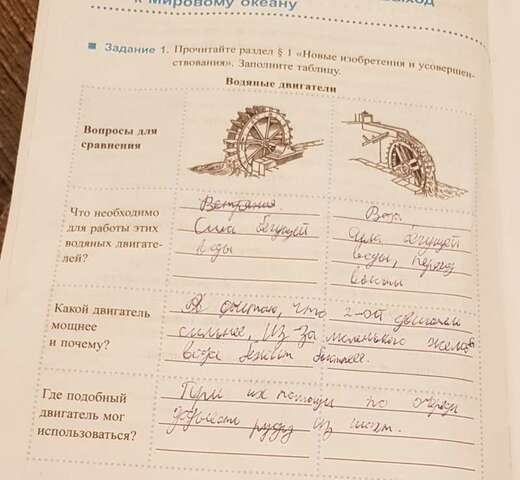 к Мировому океану
Задание 1. Прочитайте раздел § 1 «Новые изобретения и усовершен-
ствования». Заполните таблицу.
Водяные двигатели
Вопросы для
сравнения
Что необходимо
для работы этих
водяных двигате-
лей?
Сила бегущей
воды
бегущей
воды,
Какой двигатель
мощнее
и почему?
Я считаю, что 2-ой двигатель
сильнее, Из за маленького
вода быстрее.
Где подобный
двигатель мог
использоваться?
При их помощи
руду из шахт.